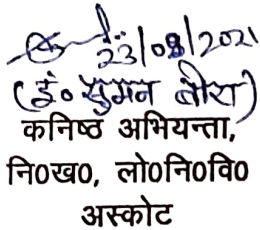 23/08/2021
(इं० सुमन बोरा)
कनिष्ठ अभियन्ता,
नि0ख0, लो0नि0वि0
अस्कोट